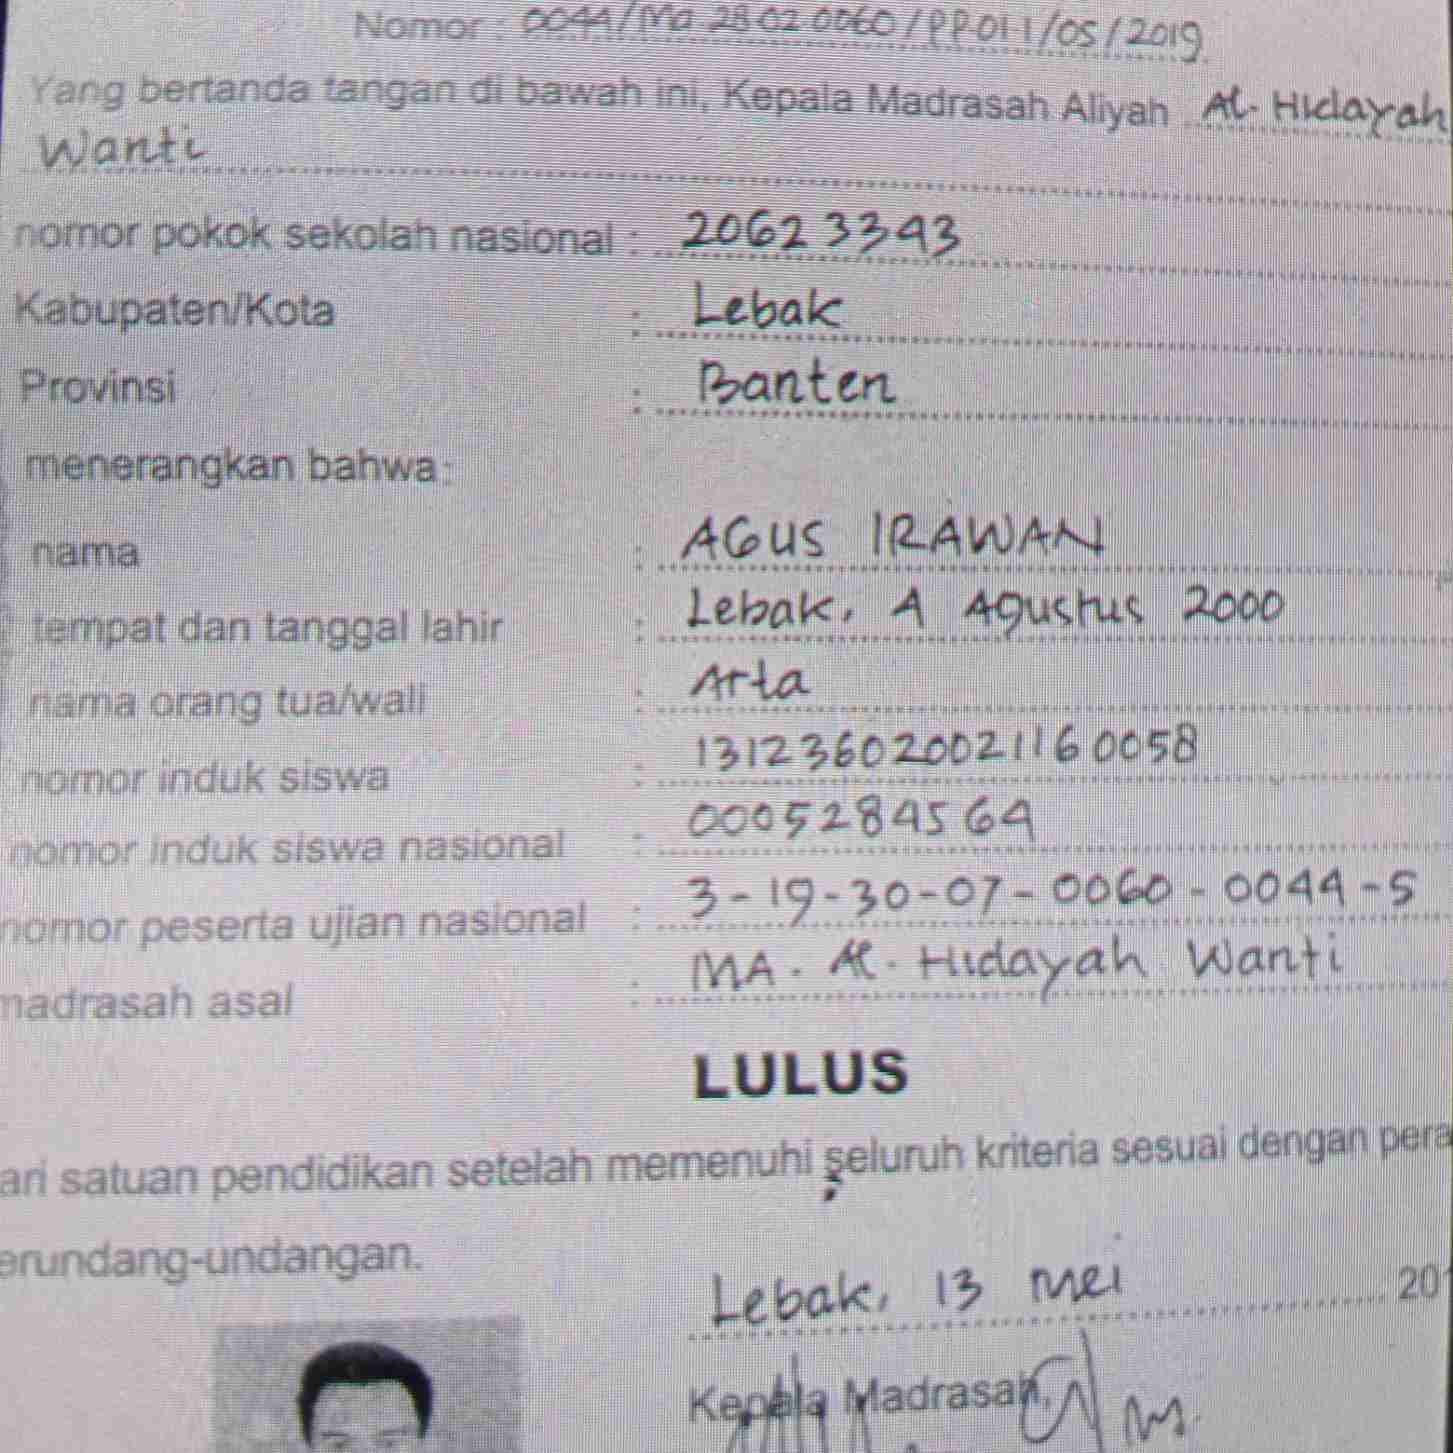 Nomor : 0044/Ma 28 02 0060/PP.01.1/05/2019
Yang bertanda tangan di bawah ini, Kepala Madrasah Aliyah Al-Hidayah
Wanti
nomor pokok sekolah nasional : 20623343
Kabupaten/Kota : Lebak
Provinsi : Banten
menerangkan bahwa:
nama : AGUS IRAWAN
tempat dan tanggal lahir : Lebak, 4 Agustus 2000
nama orang tua/wali : Arta
nomor induk siswa : 131236020021160058
nomor induk siswa nasional : 0005284564
nomor peserta ujian nasional : 3-19-30-07-0060-0044-5
madrasah asal : MA. Al-Hidayah Wanti
LULUS
ari satuan pendidikan setelah memenuhi seluruh kriteria sesuai dengan pera
erundang-undangan.
Lebak, 13 Mei 20
Kepala Madrasah,